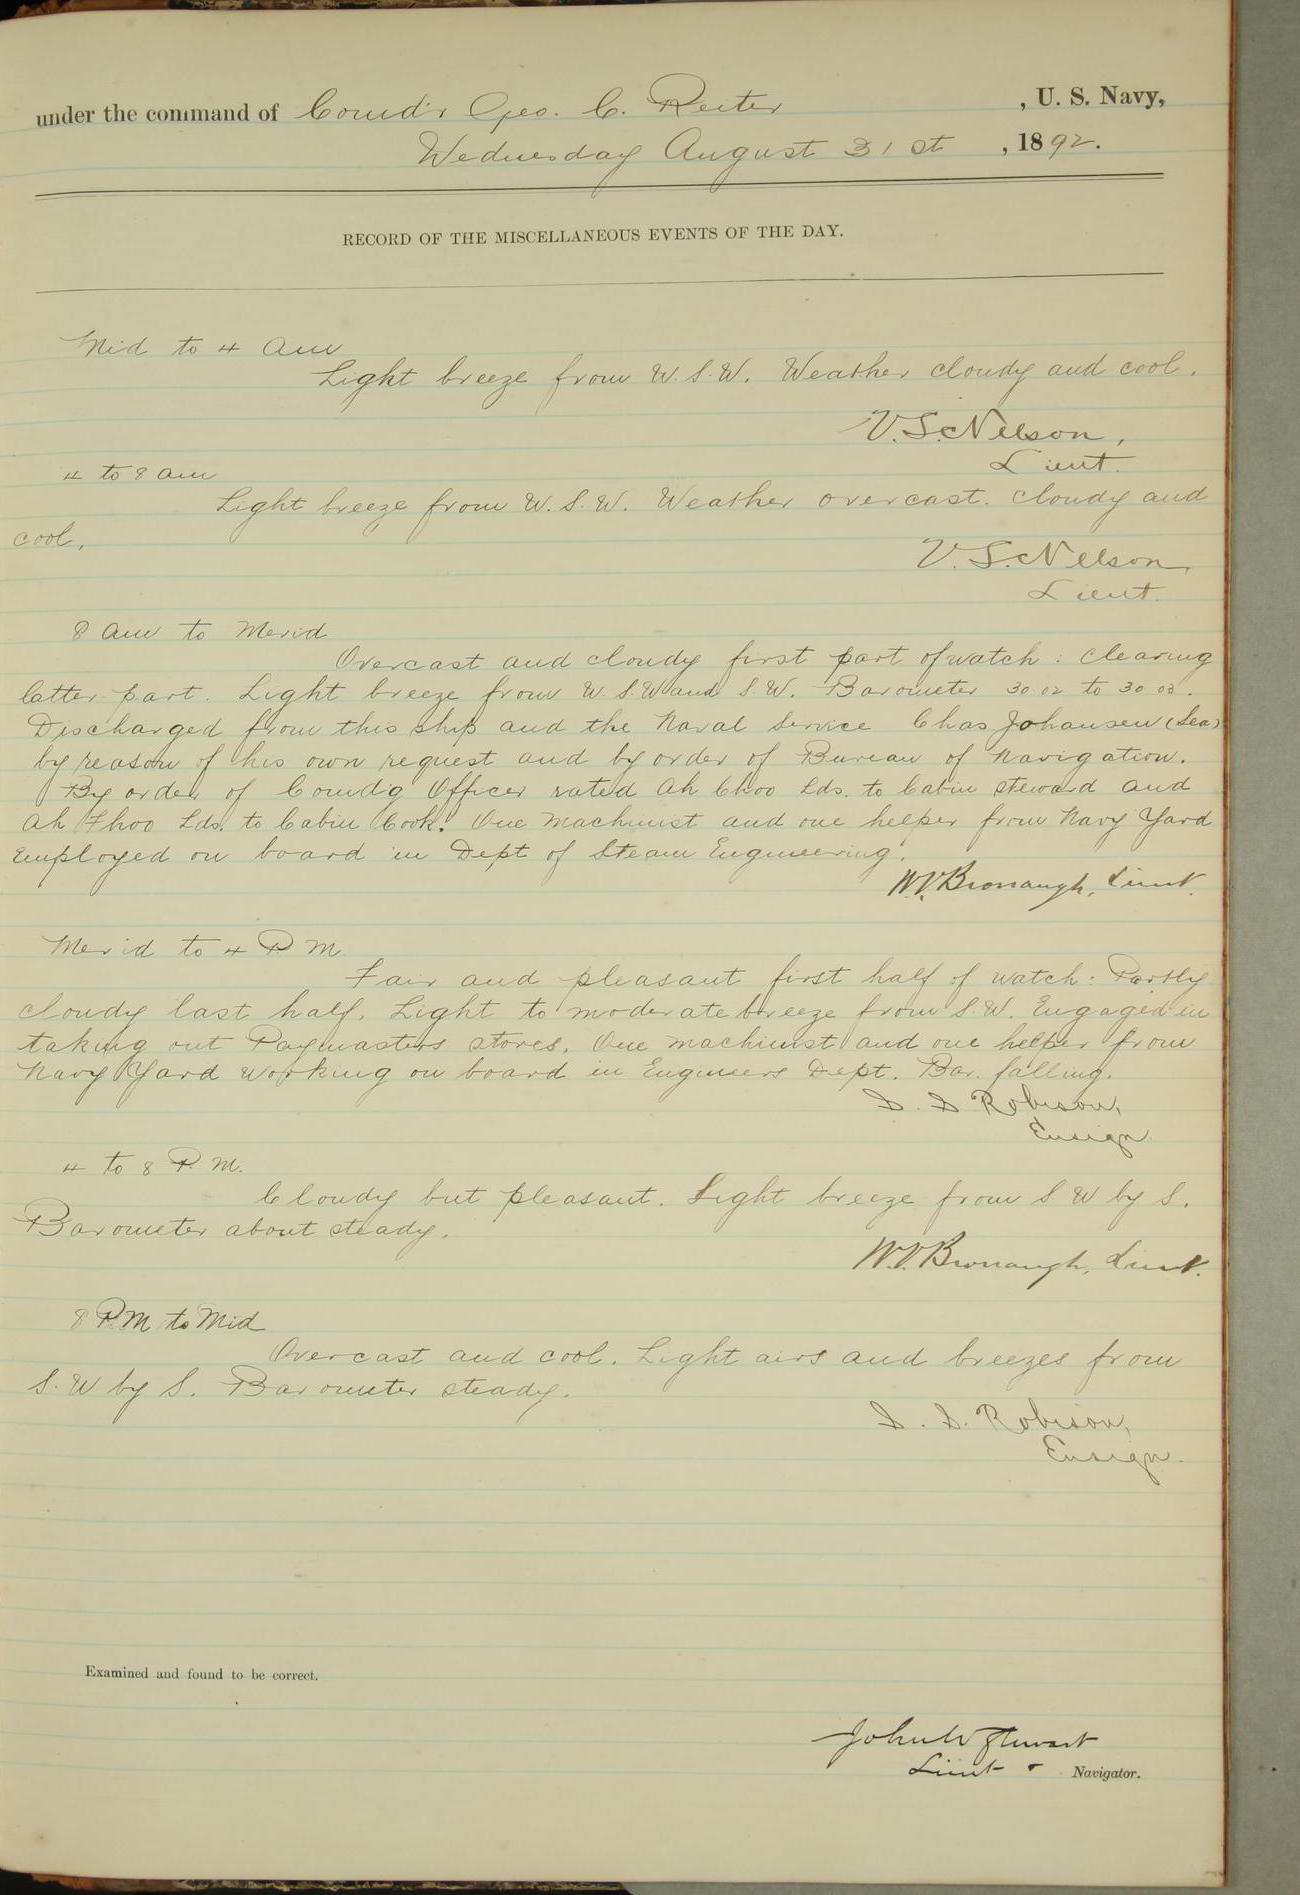 under the command of Comd'r Geo. C. Reiter , U. S. Navy,
Wednesday August 31st , 1892.
RECORD OF THE MISCELLANEOUS EVENTS OF THE DAY.
Mid to 4 am
Light breeze from W.S.W. Weather cloudy and cool.
V.S. Nelson,
Lieut.
4 to 8 am
Light breeze from W.S.W. Weather overcast. cloudy and
cool.
V.S. Nelson,
Lieut.
8 am to Merid
Overcast and cloudy first part of watch: clearing
latter part. Light breeze from W.S.W and S.W. Barometer 30 02 to 30 03.
Discharged from this ship and the Naval Service Chas Johansen (Sea)
by reason of his own request and by order of Bureau of Navigation.
By order of Comd'g Officer rated Ah Choo Lds. to Cabin steward and
Ah Fhoo Lds. to Cabin Cook. One machinist and one helper from Navy Yard
Employed on board in Dept of Steam Engineering.
W.V. Bronaugh, Lieut.
Merid to 4 P.M.
Fair and pleasant first half of watch: Partly
cloudy last half. Light to moderate breeze from S.W. Engaged in
taking out Paymasters stores. One machinist and one helper from
Navy Yard working on board in Engineers Dept. Bar. falling.
S. S. Robison,
Ensign
4 to 8 P.M.
Cloudy but pleasant. Light breeze from S W by S.
Barometer about steady.
W.V. Bronaugh, Lieut.
8 P.M to Mid
Overcast and cool. Light airs and breezes from
S.W by S. Barometer steady.
S. S. Robison,
Ensign.
Examined and found to be correct.
John W Stewart
Lieut Navigator.